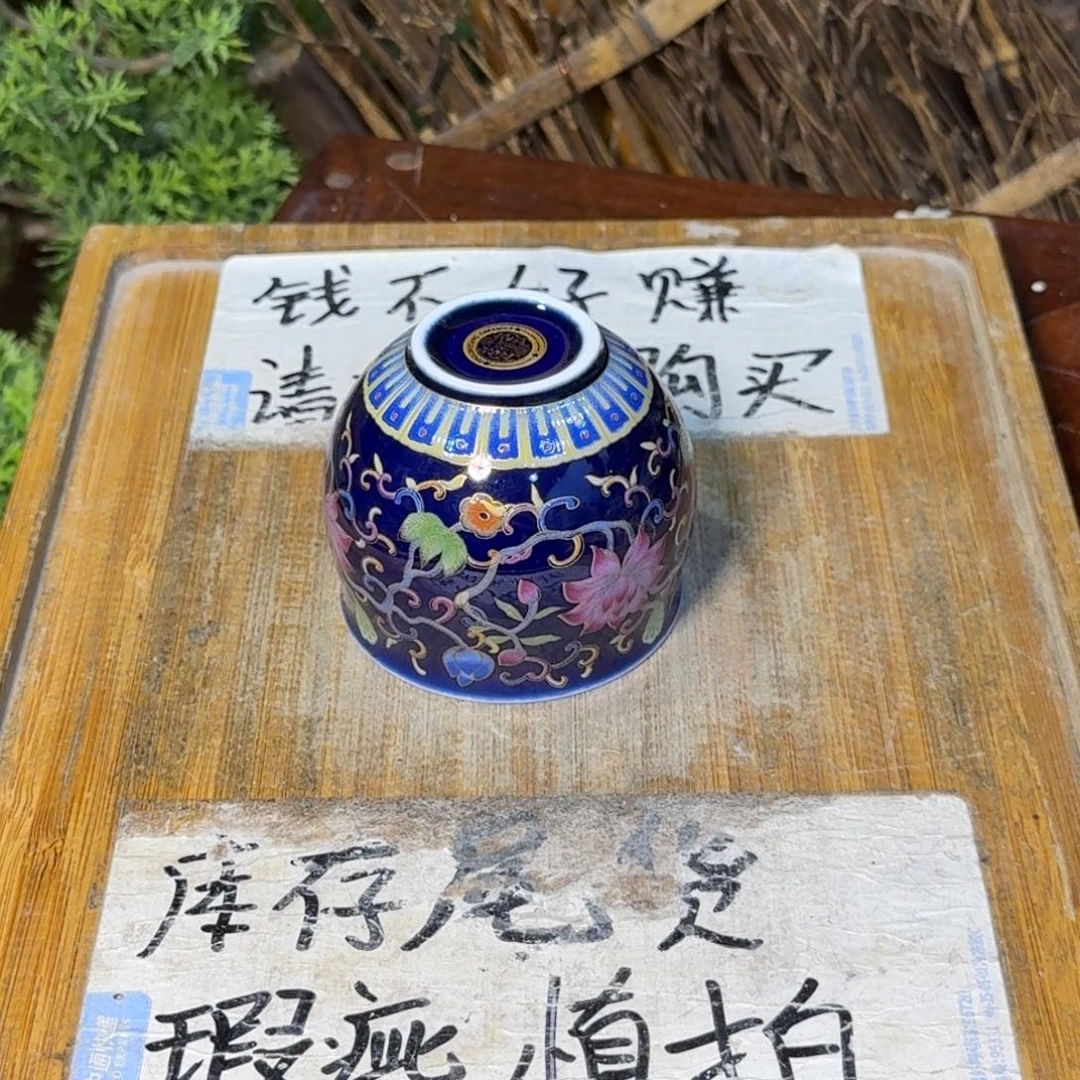 钱不好赚
请 购买
库存尾货
瑕疵慎拍